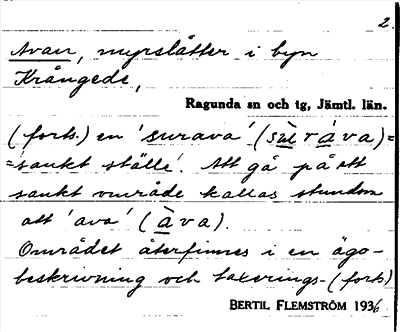 2.
Avan, myrslåtter i byn
Krångede,
Ragunda sn och tg, Jämtl. län.
(forts.) en 'surava' (sùl r à v a) =
= 'sankt ställe'. Att gå på ett
sankt område kallas stundom
att 'ava' (à v a).
Området återfinnes i en ägo-
beskrivning och taxerings- (forts)
BERTIL FLEMSTRÖM 1936.